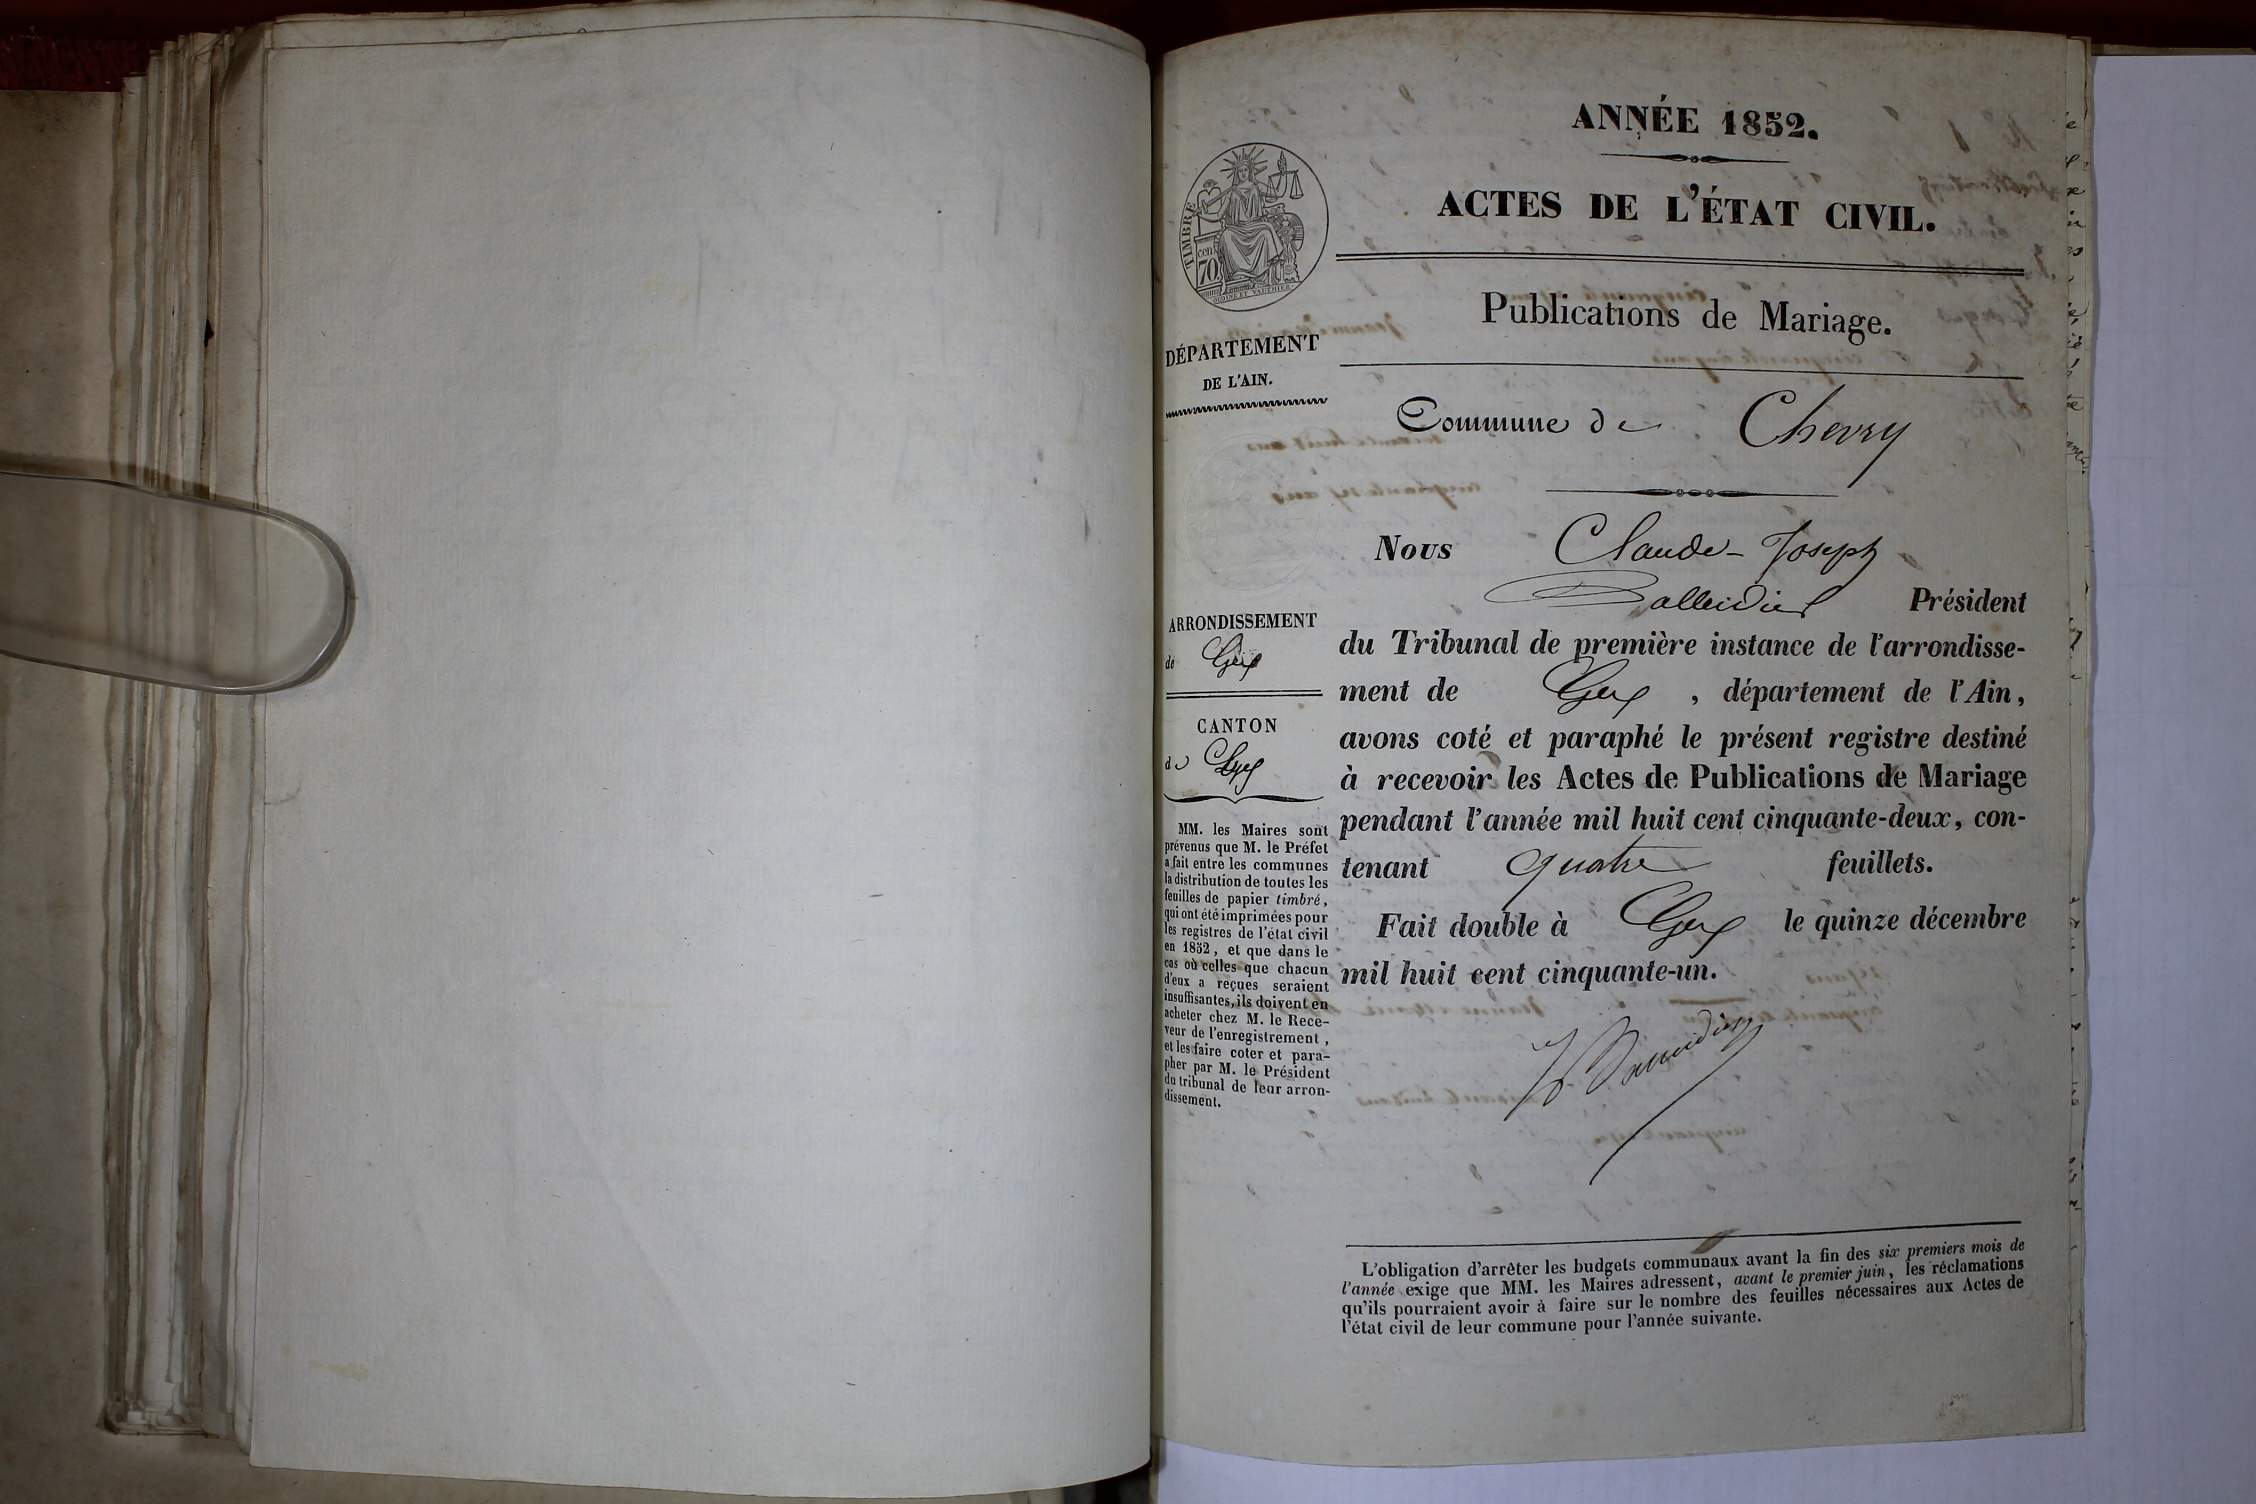 ANNÉE 1852.
ACTES DE L'ÉTAT CIVIL.
TIMBRE
cen.
70
Publications de Mariage.
DÉPARTEMENT
DE L'AIN.
Commune de Chevry
Nous Claude-Joseph
Balleidier Président
du Tribunal de première instance de l'arrondisse-
ment de Gex, département de l'Ain,
avons coté et paraphé le présent registre destiné
à recevoir les Actes de Publications de Mariage
pendant l'année mil huit cent cinquante-deux, con-
tenant quatre feuillets.
Fait double à Gex le quinze décembre
mil huit cent cinquante-un.
ARRONDISSEMENT
de Gex
CANTON
de Gex
MM. les Maires sont
prévenus que M. le Préfet
a fait entre les communes
la distribution de toutes les
feuilles de papier timbré,
qui ont été imprimées pour
les registres de l'état civil
en 1852, et que dans le
cas où celles que chacun
d'eux a reçues seraient
insuffisantes, ils doivent en
acheter chez M. le Rece-
veur de l'enregistrement,
et les faire coter et para-
pher par M. le Président
du tribunal de leur arron-
dissement.
L'obligation d'arrêter les budgets communaux avant la fin des six premiers mois de
l'année exige que MM. les Maires adressent, avant le premier juin, les réclamations
qu'ils pourraient avoir à faire sur le nombre des feuilles nécessaires aux Actes de
l'état civil de leur commune pour l'année suivante.